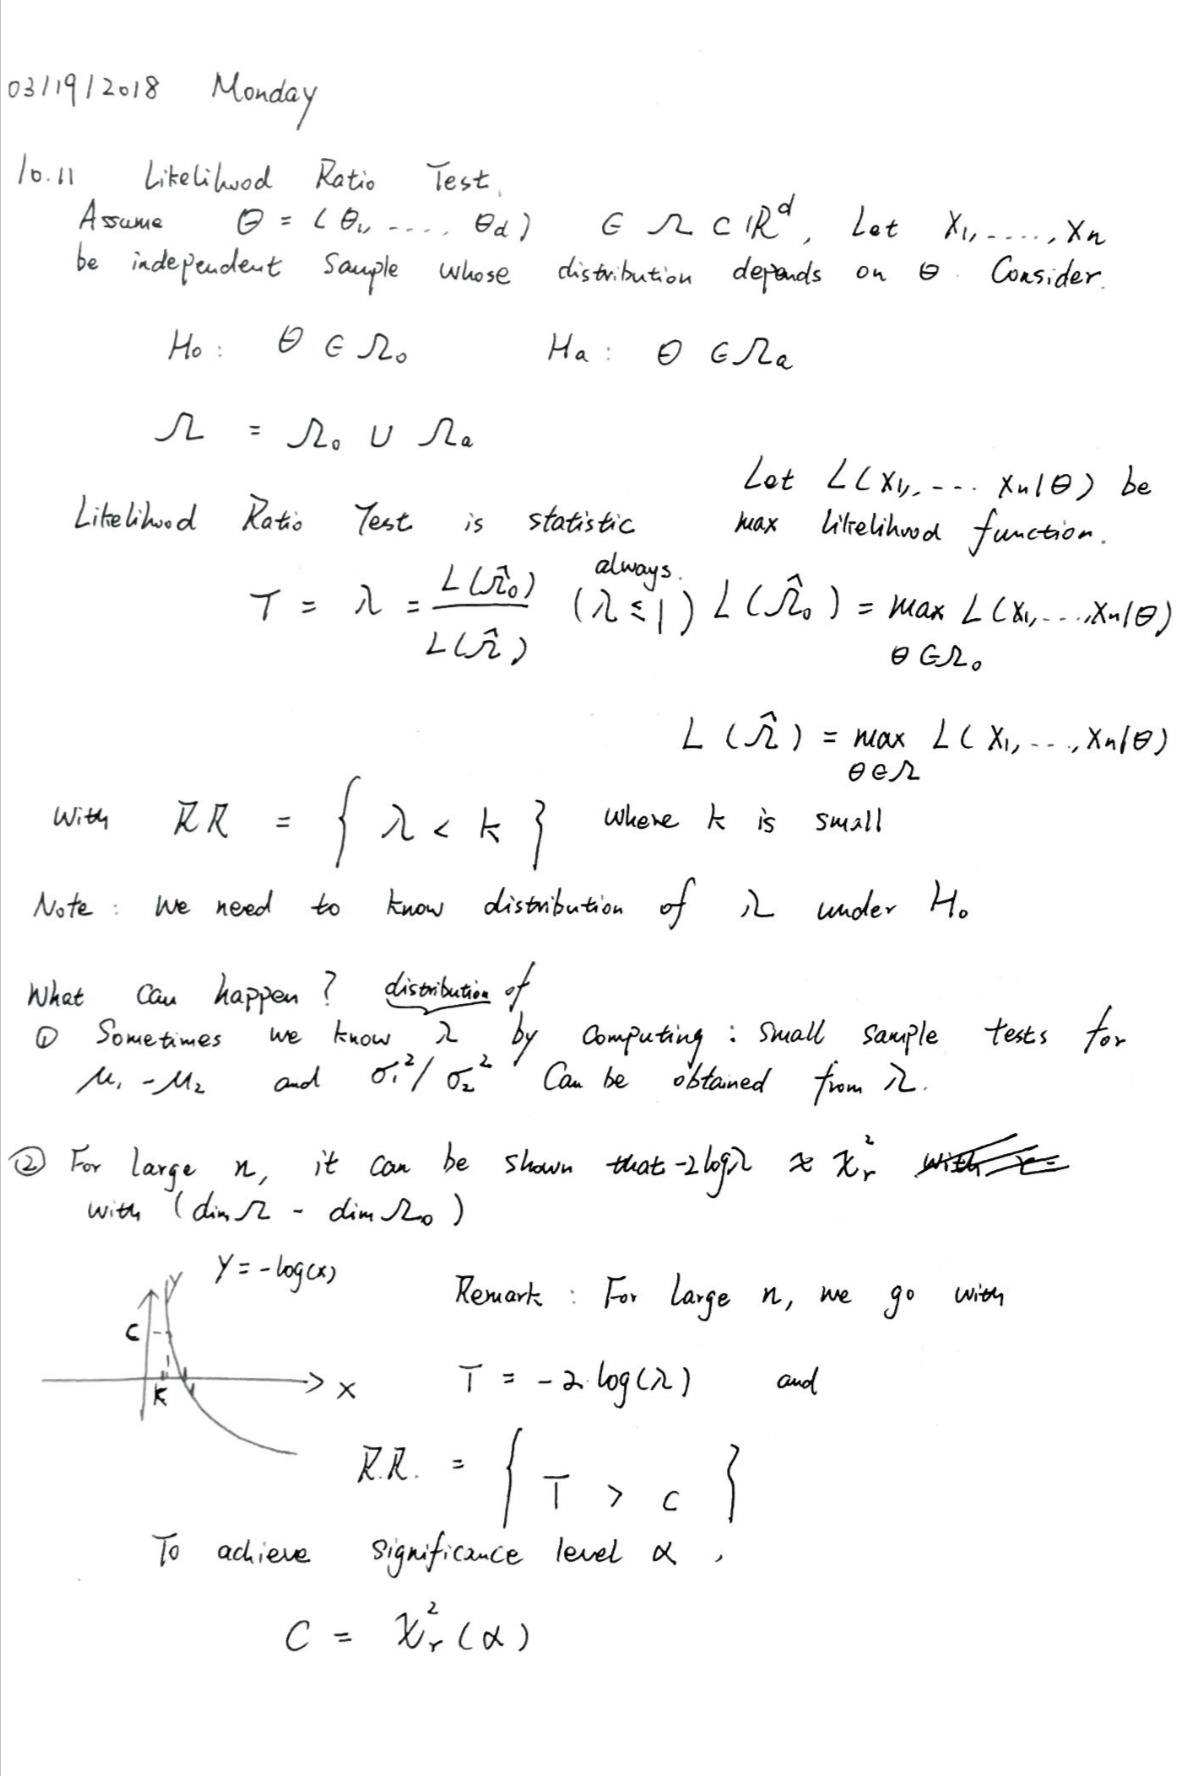 03/19/2018 Monday
10.11 Likelihood Ratio Test.
Assume θ = (θ₁, ...., θd) ∈ Ω ⊂ ℝᵈ, Let X₁, ....., Xn
be independent sample whose distribution depends on θ. Consider.
H₀ : θ ∈ Ω₀ Ha : θ ∈ Ωa
Ω = Ω₀ ∪ Ωa
Let L(X₁, .... Xn|θ) be
Likelihood Ratio Test is statistic max likelihood function.
T = λ = L(Ω̂₀) / L(Ω̂) (λ ≤ 1) always. L(Ω̂₀) = max L(X₁, ...., Xn|θ)
θ ∈ Ω₀
L(Ω̂) = max L(X₁, ..., Xn|θ)
θ ∈ Ω
With RR = { λ < k } where k is small
Note : We need to know distribution of λ under H₀
What can happen ? distribution of
① Sometimes we know λ by computing : small sample tests for
μ₁ - μ₂ and σ₁² / σ₂² can be obtained from λ.
② For large n, it can be shown that -2logλ ≈ χ²r
with (dim Ω - dim Ω₀)
y = -log(x)
y
C
k
x
Remark : For large n, we go with
T = -2·log(λ) and
R.R. = { T > c }
To achieve significance level α ,
C = χ²r(α)